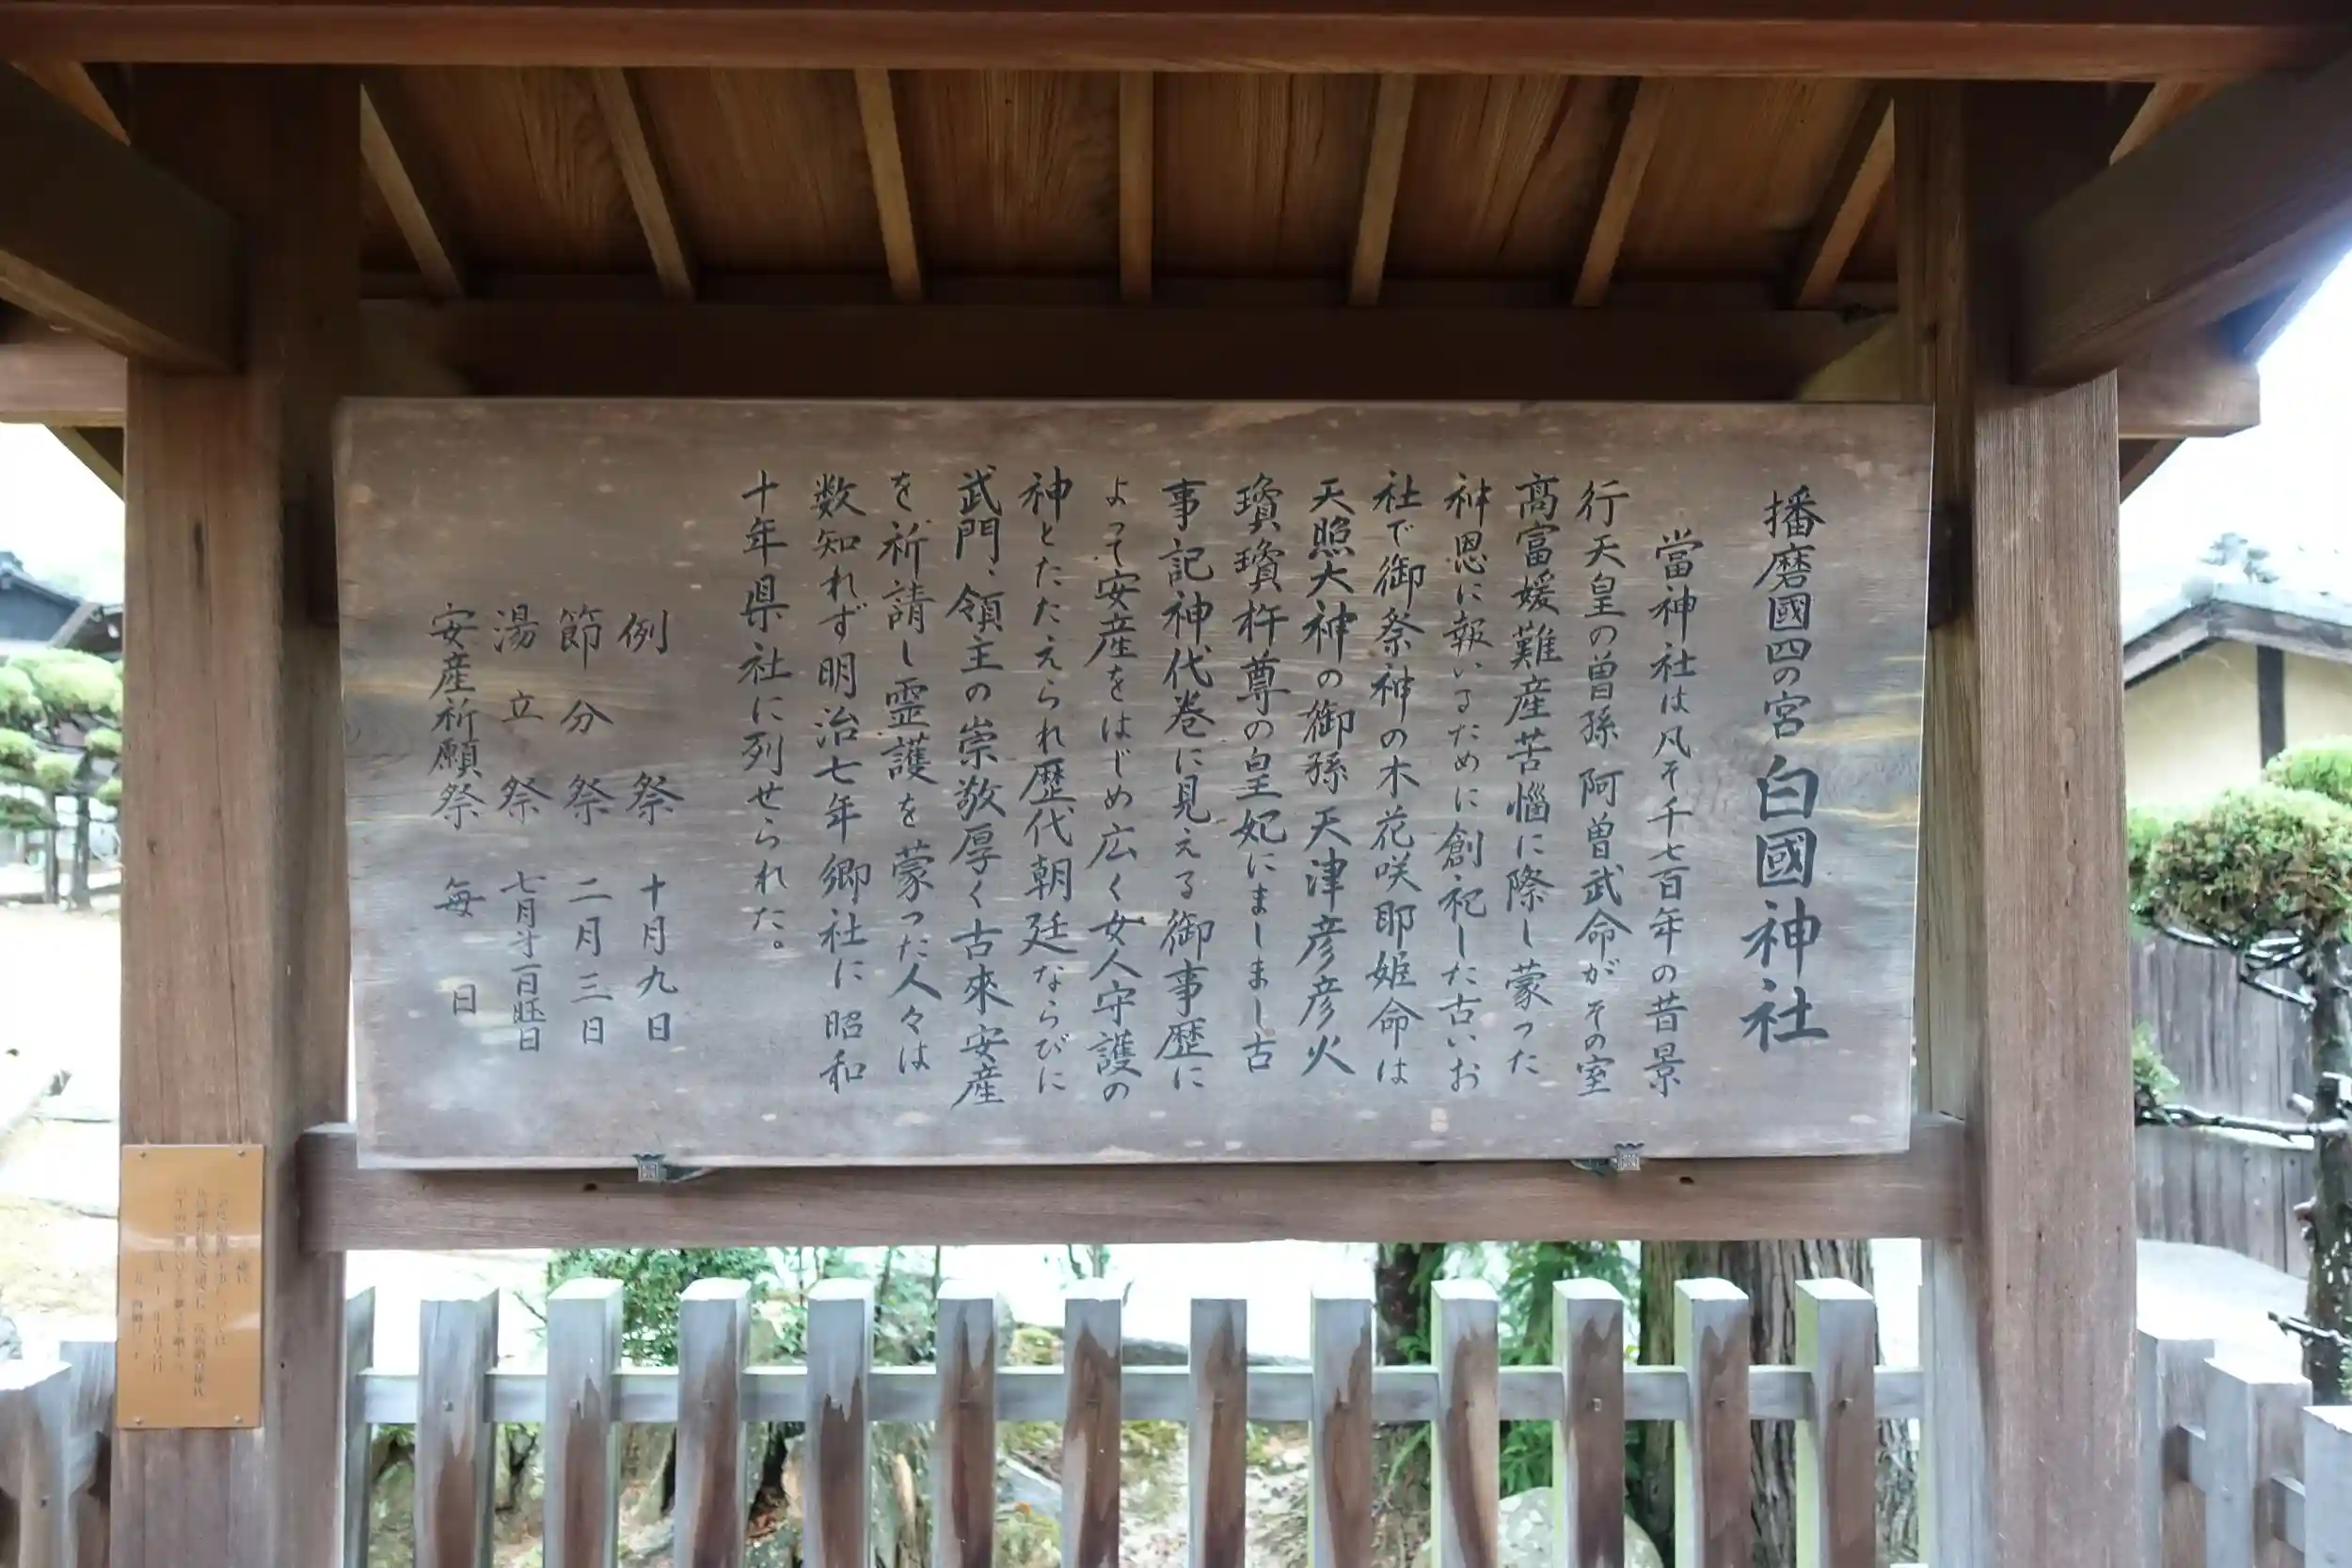 播磨國四の宮 白國神社
當神社は凡そ千七百年の昔景
行天皇の曽孫 阿曽武命がその室
高富媛難産苦悩に際し蒙った
神恩に報いるために創祀した古いお
社で御祭神の木花咲耶姫命は
天照大神の御孫 天津彦彦火
瓊瓊杵尊の皇妃にましまし古
事記神代巻に見える御事歴に
よって安産をはじめ広く女人守護の
神とたたえられ歴代朝廷ならびに
武門、領主の崇敬厚く古來安産
を祈請し霊護を蒙った人々は
数知れず明治七年郷社に昭和
十年県社に列せられた。
例祭 十月九日
節分祭 二月三日
湯立祭 七月才一日曜日
安産祈願祭 毎日